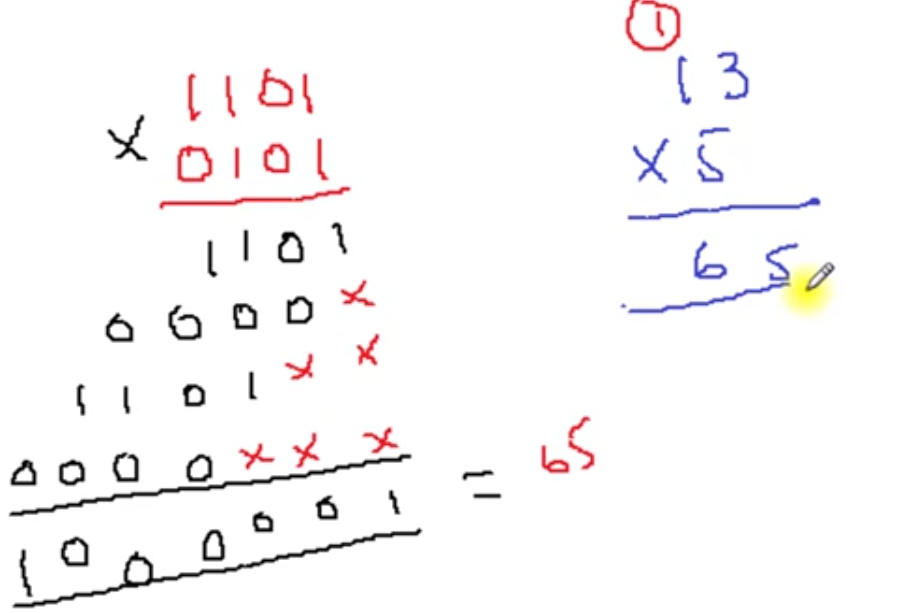 1101
X 0101
1101
0000 x
1101 x x
0000 x x x
1000001 = 65
1
13
X 5
65